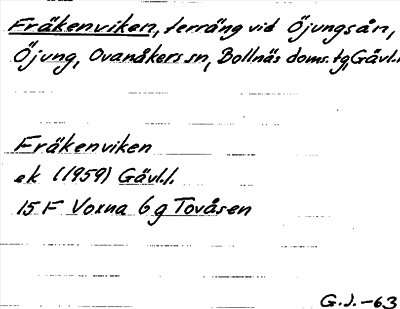 Fräkenviken, terräng vid Öjungsån,
Öjung, Ovanåkers sn, Bollnäs doms. tg, Gävl.l.
Fräkenviken
ek (1959) Gävl.l.
15 F Voxna 6 g Tovåsen
G.J. -63